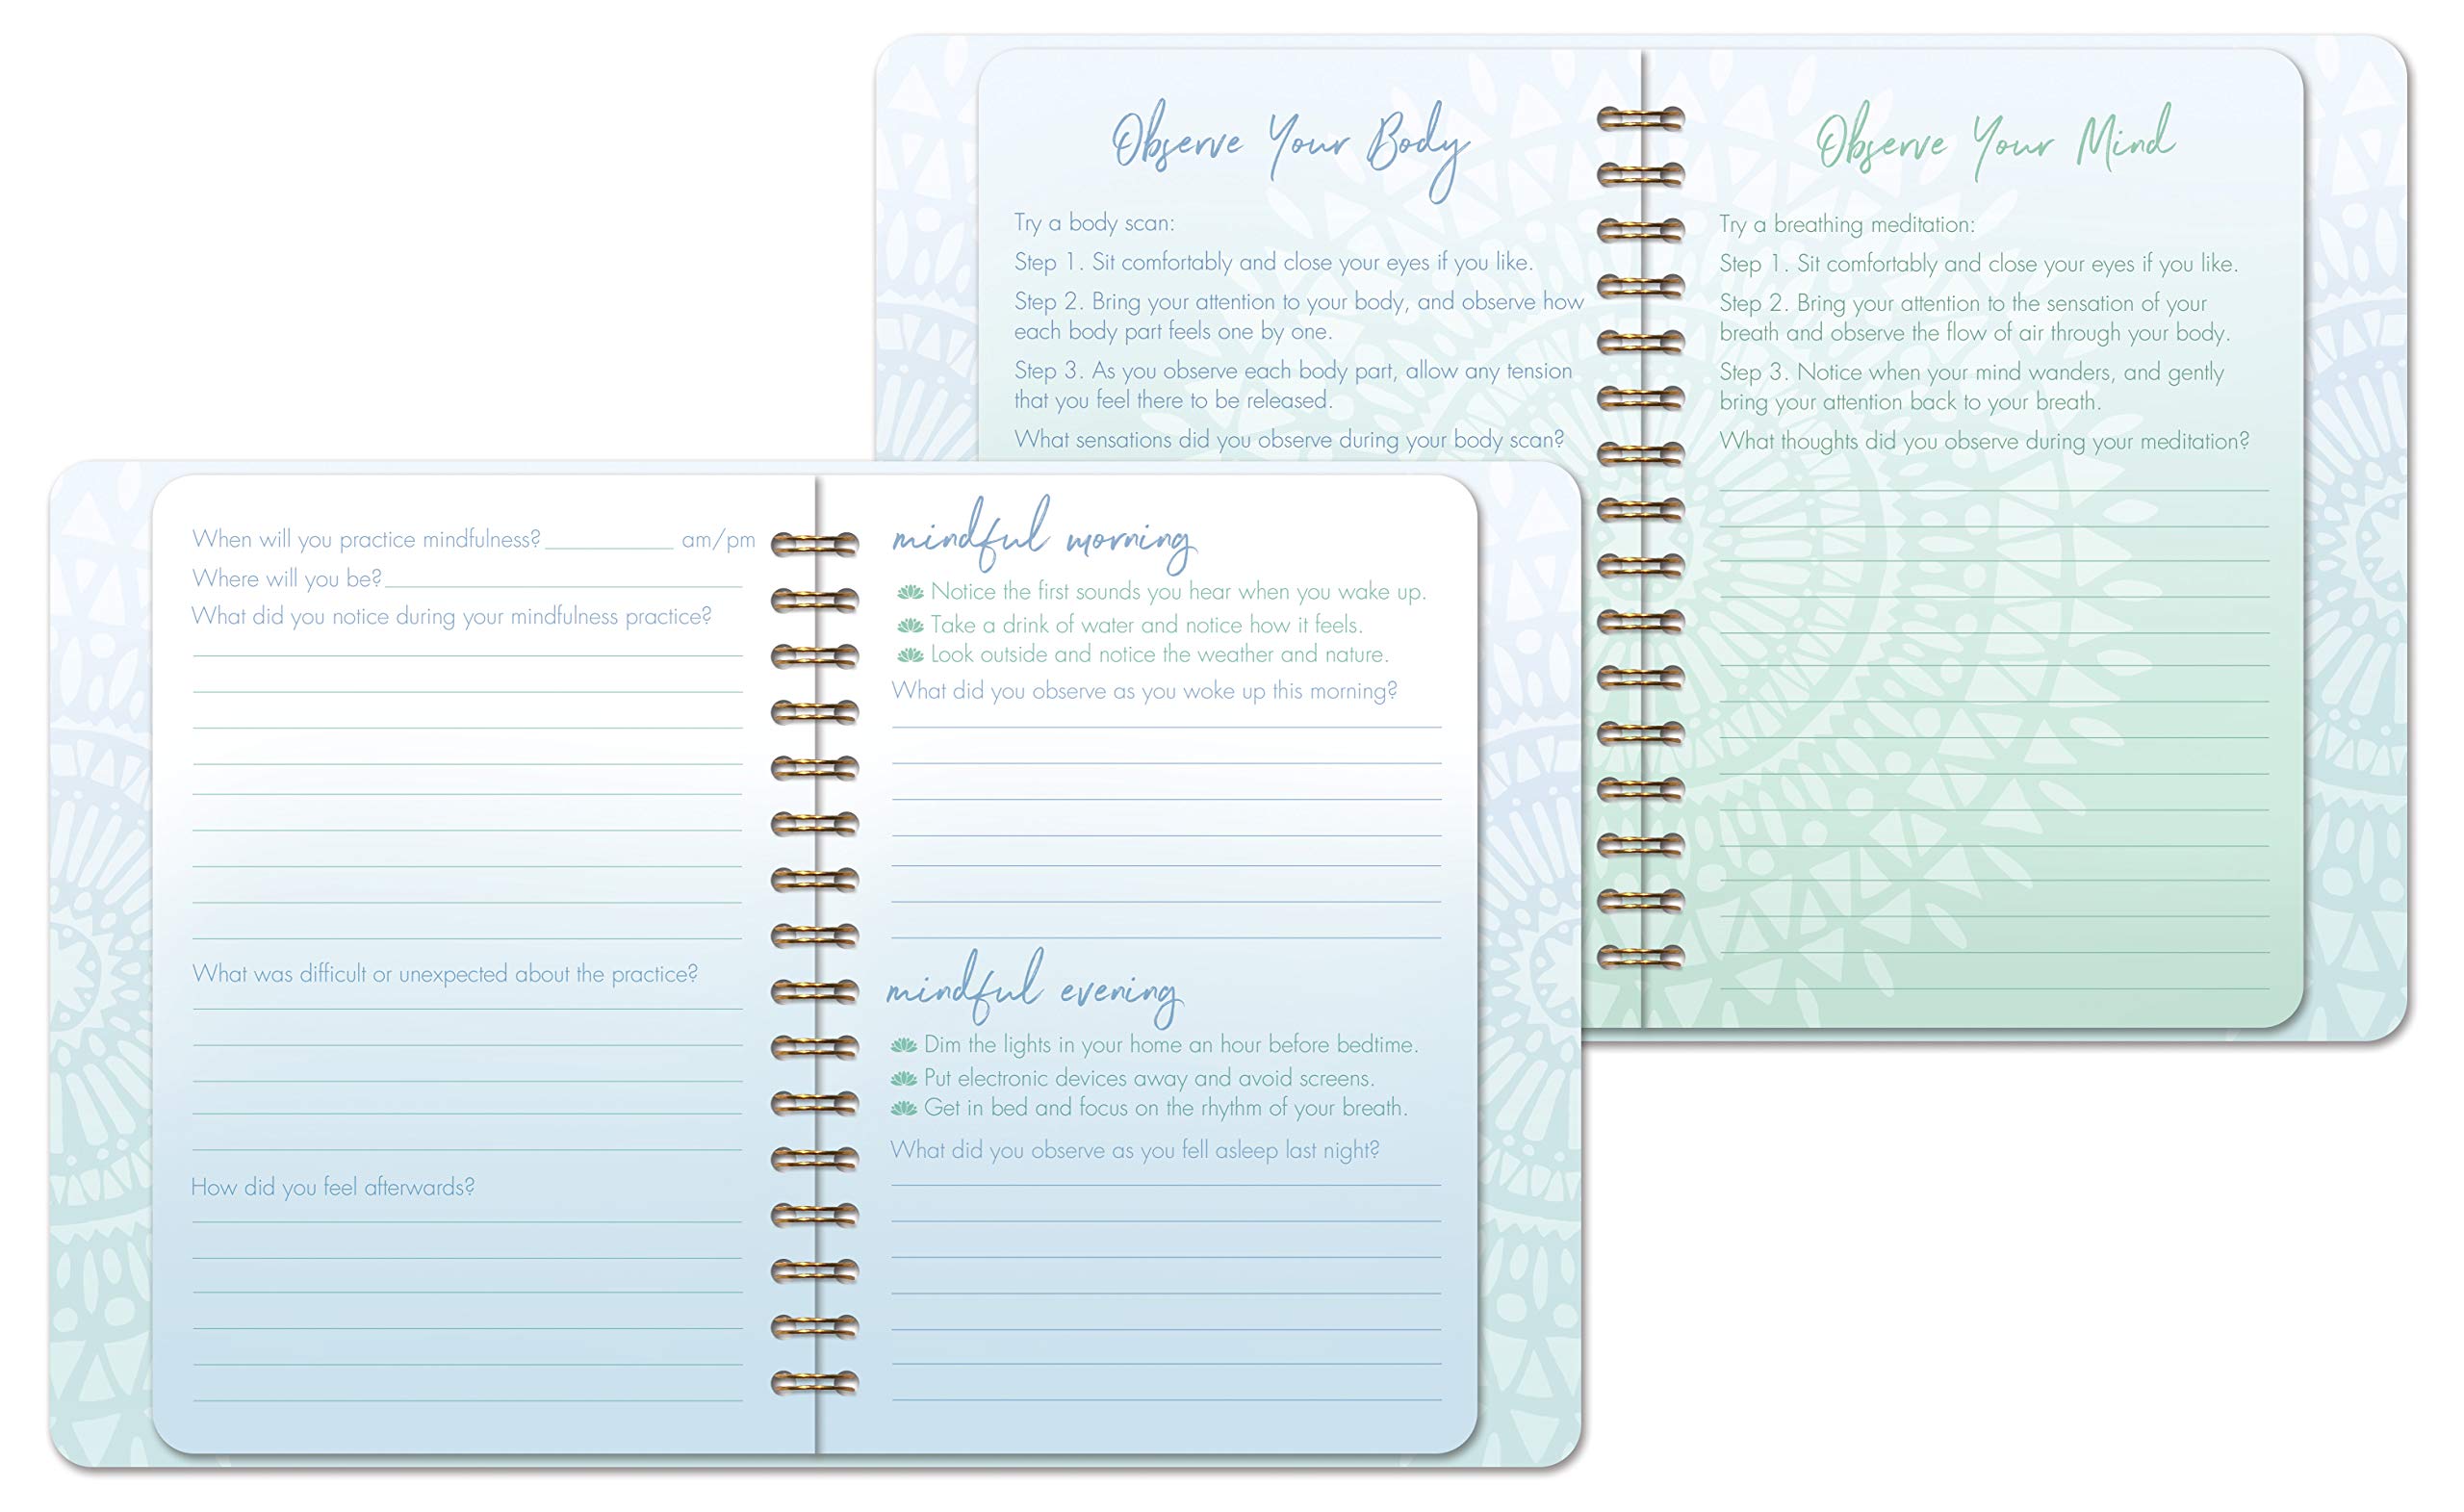 Observe Your Body
Try a body scan:
Step 1. Sit comfortably and close your eyes if you like.
Step 2. Bring your attention to your body, and observe how
each body part feels one by one.
Step 3. As you observe each body part, allow any tension
that you feel there to be released.
What sensations did you observe during your body scan?
Observe Your Mind
Try a breathing meditation:
Step 1. Sit comfortably and close your eyes if you like.
Step 2. Bring your attention to the sensation of your
breath and observe the flow of air through your body.
Step 3. Notice when your mind wanders, and gently
bring your attention back to your breath.
What thoughts did you observe during your meditation?
When will you practice mindfulness?__________ am/pm
Where will you be?
What did you notice during your mindfulness practice?
What was difficult or unexpected about the practice?
How did you feel afterwards?
mindful morning
Notice the first sounds you hear when you wake up.
Take a drink of water and notice how it feels.
Look outside and notice the weather and nature.
What did you observe as you woke up this morning?
mindful evening
Dim the lights in your home an hour before bedtime.
Put electronic devices away and avoid screens.
Get in bed and focus on the rhythm of your breath.
What did you observe as you fell asleep last night?